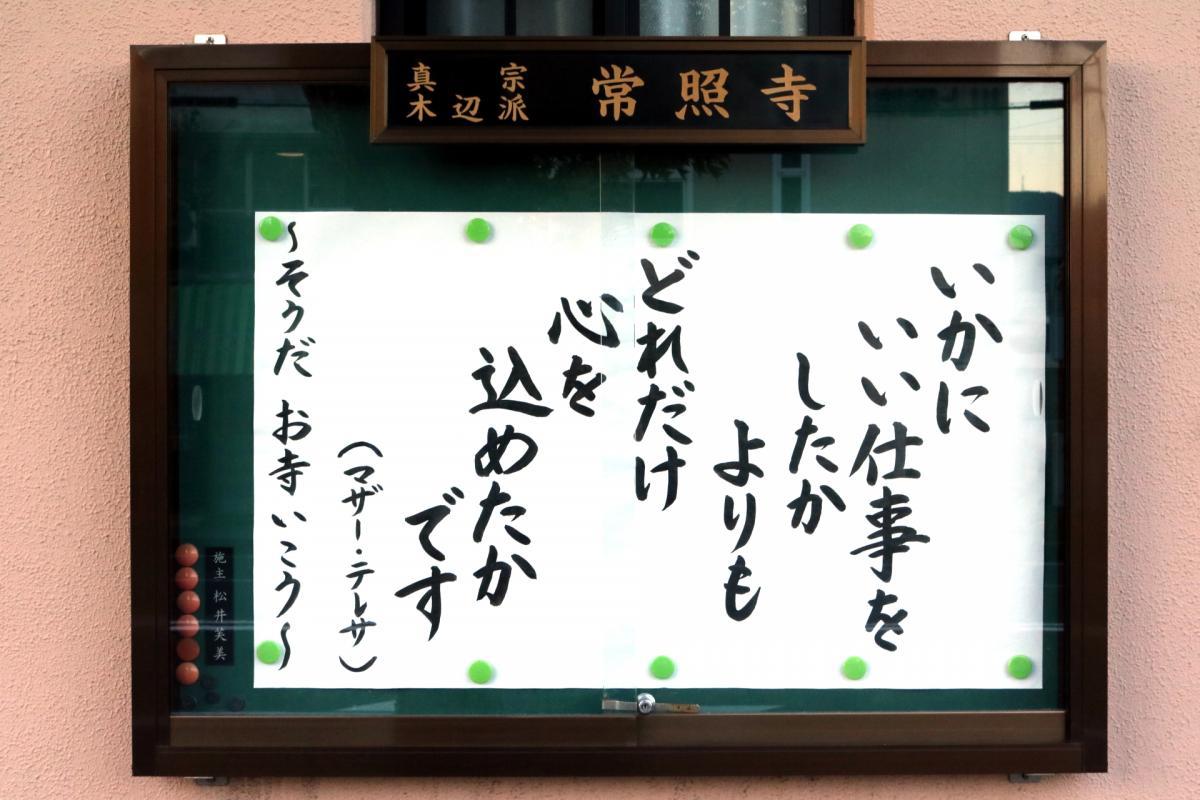 真宗
木辺派
常照寺
いかに
いい仕事を
したか
よりも
どれだけ
心を
込めたか
です
(マザー・テレサ)
〜そうだ お寺いこう〜
施主 松井芙美